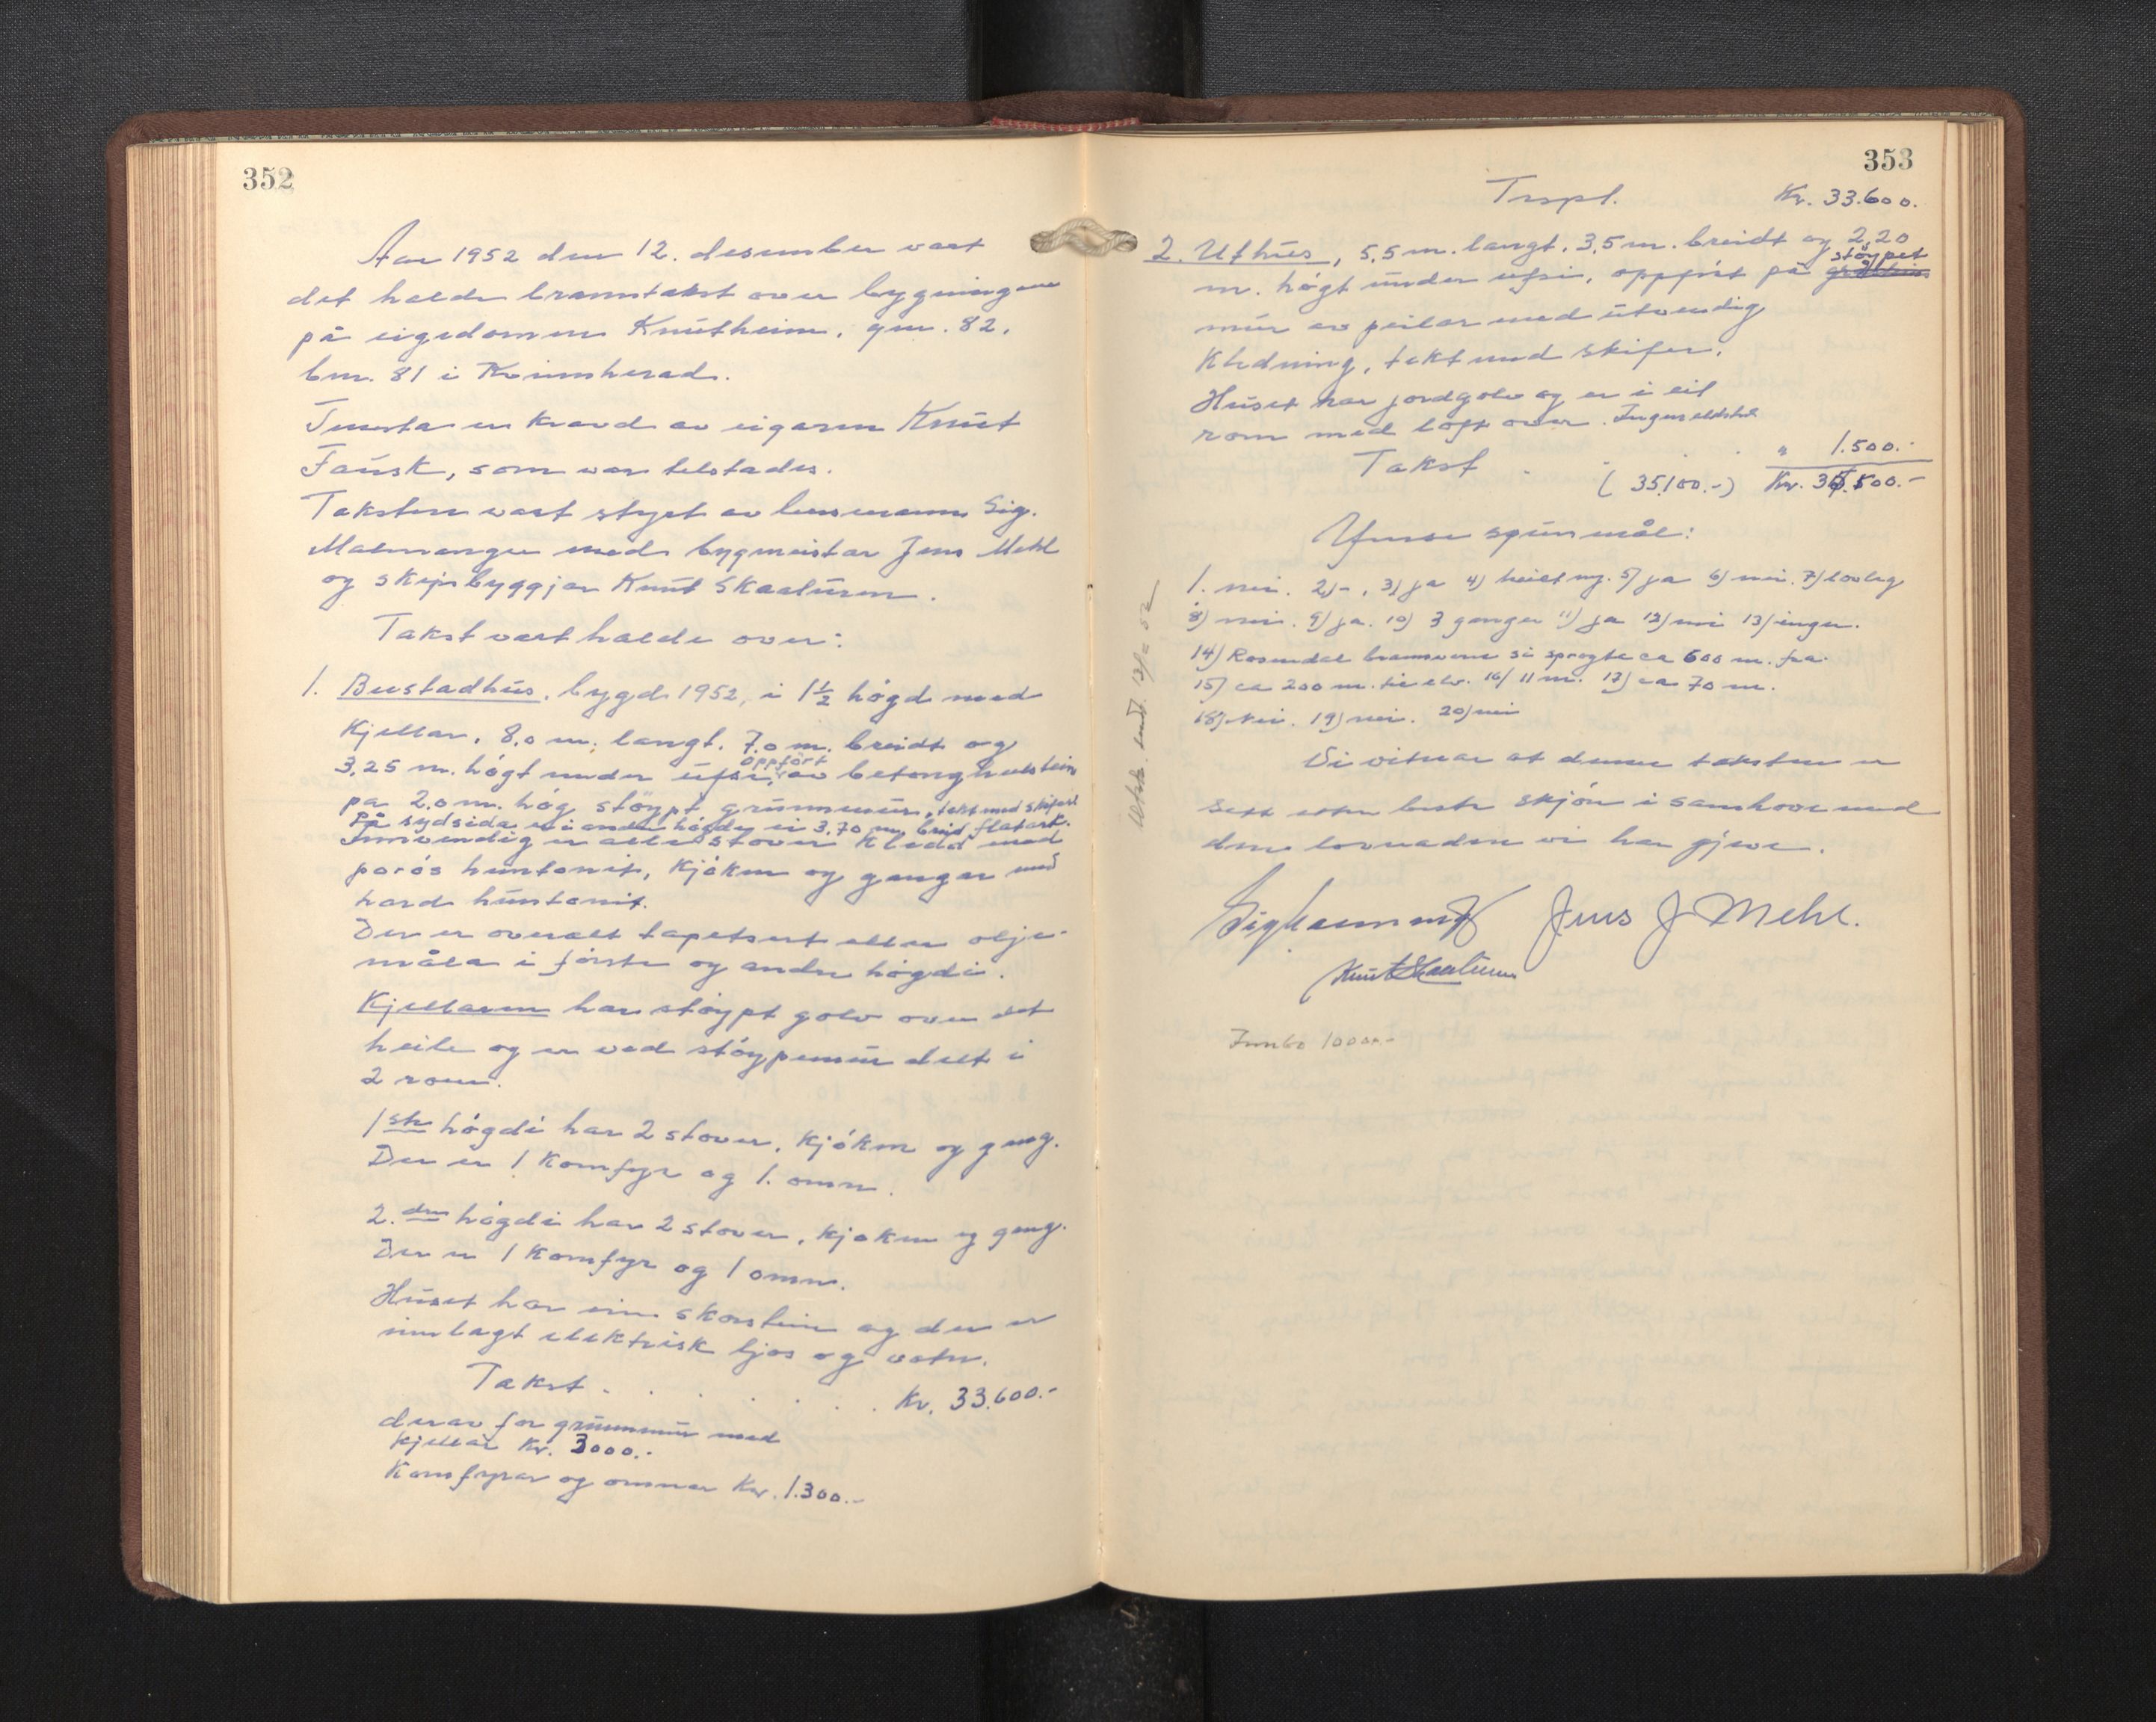 352
Aar 1952 den 12. desember vart
det halde branntakst over bygningane
på eigedomen Knutheim, gnr. 82,
bnr. 81 i Kvinnherad.
Tenesta er kravd av eigaren Knut
Fausk, som var tilstades.
Taksten vart styrt av lensmann Sig.
Malmanger med bygmeistar Jens Mehl
og skipsbyggjar Knut Skaaluren.
Takst vart halde over:
1. Bustadhus, bygd 1952, i 1½ høgd med
kjellar, 8,0 m. langt, 7,0 m. breidt og
oppført
3,25 m. høgt under ufsi, av betongholstein
på 2,0 m. høg støypt grunnmur, tekt med skifer.
På sydsida er i andre høgdi ei 3,70 m. breid flatark.
Innvendig er alle stover kledd med
porøs huntonit, kjøken og gangar med
hard huntonit.
Der er overalt tapetsert eller olje-
måla i første og andre høgdi.
Kjellaren har støypt golv over det
heile og er ved støypemur delt i
2 rom.
1ste høgdi har 2 stover, kjøken og gang.
Der er 1 komfyr og 1. omn.
2.den høgdi har 2 stover, kjøken og gang.
Der er 1 komfyr og 1 omn.
Huset har ein skorstein og der er
innlagt elektrisk ljos og vatn.
Takst . . . . . . . Kr. 33.600.-
derav for grunnmur med
kjellar Kr. 3000.-
Komfyrar og omnar Kr. 1.300.-
353
Trspt. Kr. 33.600.
2. Uthus, 5,5 m. langt, 3,5 m. breidt og 2,20
støypt
m. høgt under ufsi, oppført på
mur av peilar med utvendig
kledning, tekt med skifer.
Huset har jordgolv og er i eit
rom med loft over. Ingen eldstad
Takst . . . " 1.500.-
(35.100.-) Kr. 36.500.-
Ymse spursmål:
1. nei. 2) -, 3) ja 4) heilt ny. 5) ja 6) nei. 7) lovleg
8) nei. 9) ja. 10) 3 ganger 11) ja 12) nei 13) ingen.
14) Rosendal brannvern si sprøyte ca 600 m. frå.
15) ca 200 m. til elv. 16) 11 m. 17) ca 70 m.
18) Nei. 19) nei. 20) nei
Vi vitnar at denne taksten er
sett etter beste skjøn i samhøve med
den lovnaden vi har gjeve.
Sig Malmanger Jens J Mehl.
Knut Skaaluren
Jumbo 1000.-
Utskr. send